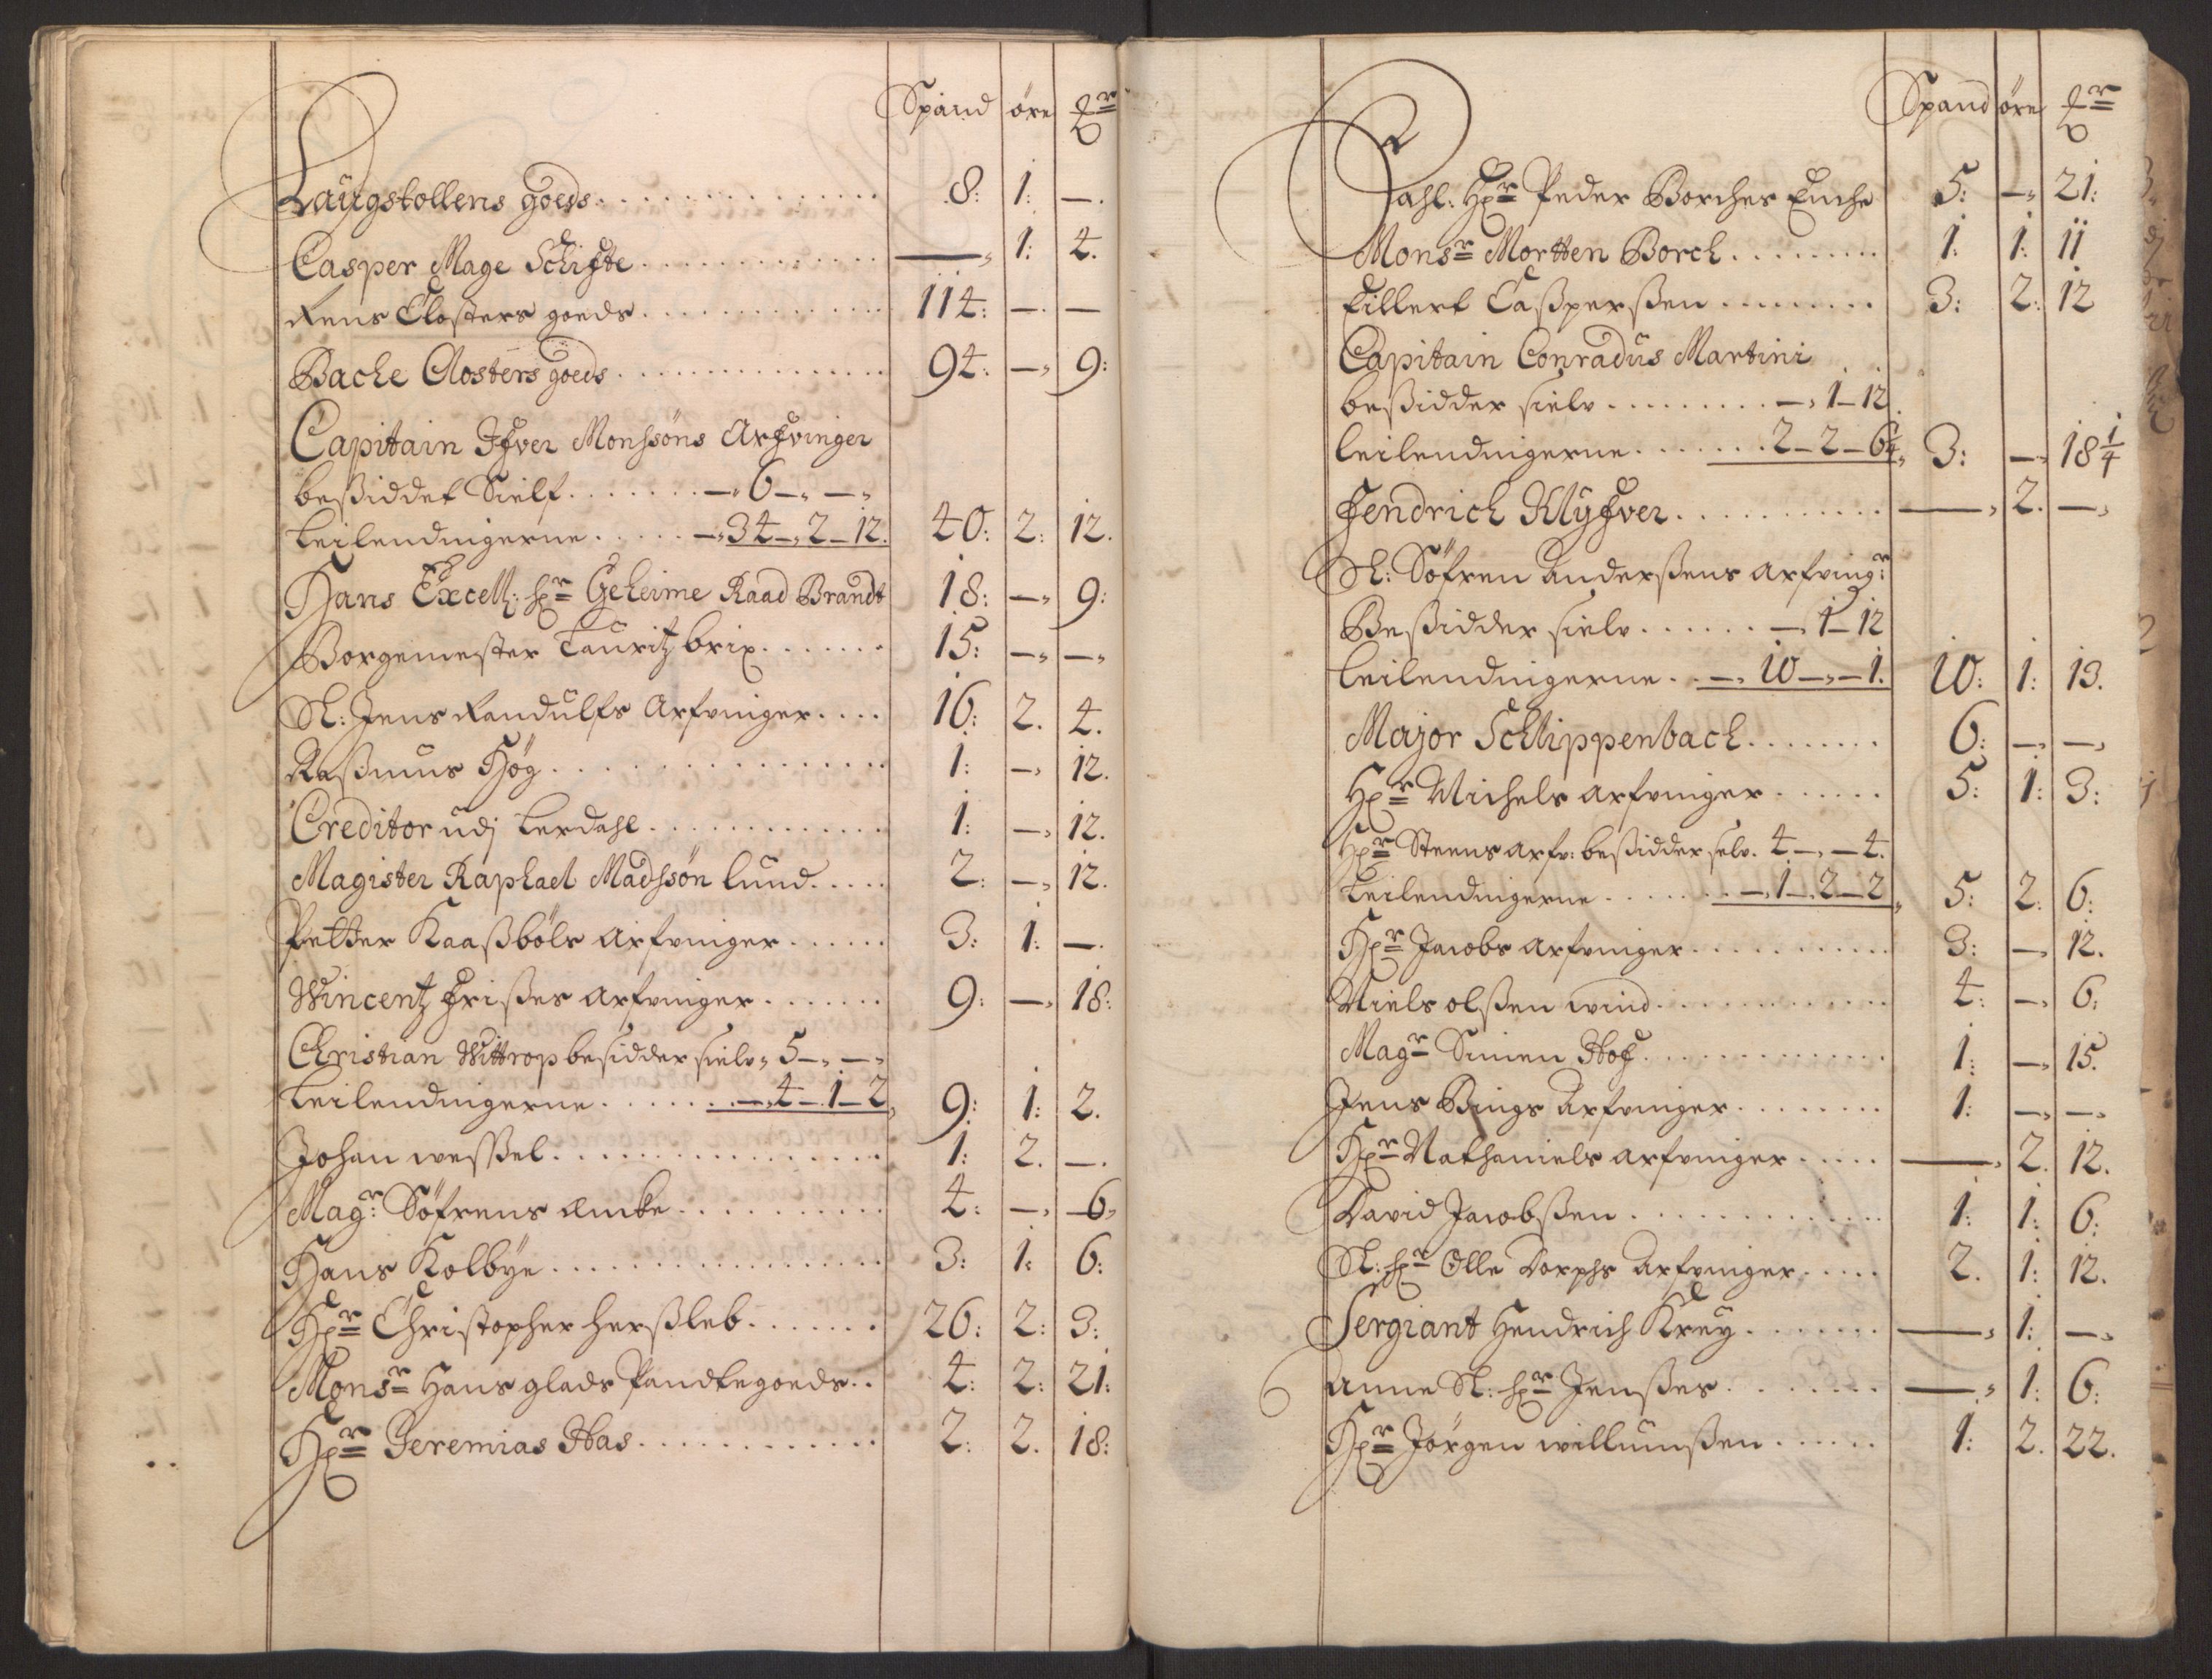 Spand öre
Laugstollens goeds . . . 8: 1: —.
Casper Mage Schifte . . . —„ 1: 4.
Rens Closters goeds . . . 114: —. —
Bache Closters goeds . . . 94: —„ 9:
Capitain Ifver Monssöns Arfvinger
beßiddet Sielf . . . —„ 6 —„ —„
Leilendingerne . . . —„ 34 —„ 2 — 12. 40: 2: 12.
Hans Excell: Hr Geheime Raad Brandt 18: —„ 9:
Borgemester Lauritz brix . . . 15: —„ —„
Sl: Jens Randulfs Arfvinger . . . 16: 2. 4.
Raßmus Hög . . . 1: —„ 12.
Creditor udj Lerdahl . . . 1: —„ 12.
Magister Raphael Madssön lund . . . 2: —„ 12.
Petter Kaaßböls Arfvinger . . . 3: 1: —.
Wincentz Frißes Arfvinger . . . 9: —„ 18:
Christian Wittrop besidder sielv„ 5 —„ —„
Leilendingerne . . . —„ 4 — 1 — 2„ 9: 1: 2.
Johan wessel . . . 1: 2. —.
Magr: Söfrens Encke . . . 4: —„ 6„
Hans Kolbye . . . 3: 1: 6:
Hr Christopher Herßleb . . . 26: 2: 3:
Monsr Hans glads Pandtegoeds . . 4: 2: 21:
Hr Jeremias Has . . . 2: 2. 18:
Spand öre
Sahl: Hr Peder Borches Enche 5: —„ 21:
Monsr Mortten Borch . . . 1: 1: 11
Eillert Caßperßen . . . 3: 2: 12
Capitain Conradus Martini
beßidder sielv . . . —„ 1 — 12.
leilendingerne . . . 2 — 2 — 6¼„ 3: —„ 18¼
Fendrich Klyfver . . . —„ 2. —„
Sl: Söfren Anderßens arfvingr:
Beßidder sielv . . . —„ 1 — 12
leilendingerne . . —„ 10 —„ — 1. 10: 1: 13.
Major Schlippenbach . . . 6: —„ —„
Hr Michels arfvinger . . . 5: 1: 3:
Hr Steens arfv: beßidder selv. 4 —„ — 4.
Leilendingerne . . . —„ 1 — 2 — 2„ 5: 2: 6:
Hr Jacobs arfvinger . . . 3: —„ 12.
Niels olßen wind . . . 4: —„ 6:
Magr Simen Hof . . . 1: —„ 15.
Jens Bings Arfvinger . . . 1: —„ —„
Hr Nathaniels arfvinger . . . —„ 2. 12.
David Jacobßen . . . 1: 1: 6:
Sl: Hr Olle Dorphs Arfvinger . . . 2. 1: 12.
Sergiant Hendrich Krey . . . —„ 1: —„
Anne Sl: Hr Jenßes . . . —„ 1: 6:
Hr Jörgen willumßen . . . 1: 2. 22.